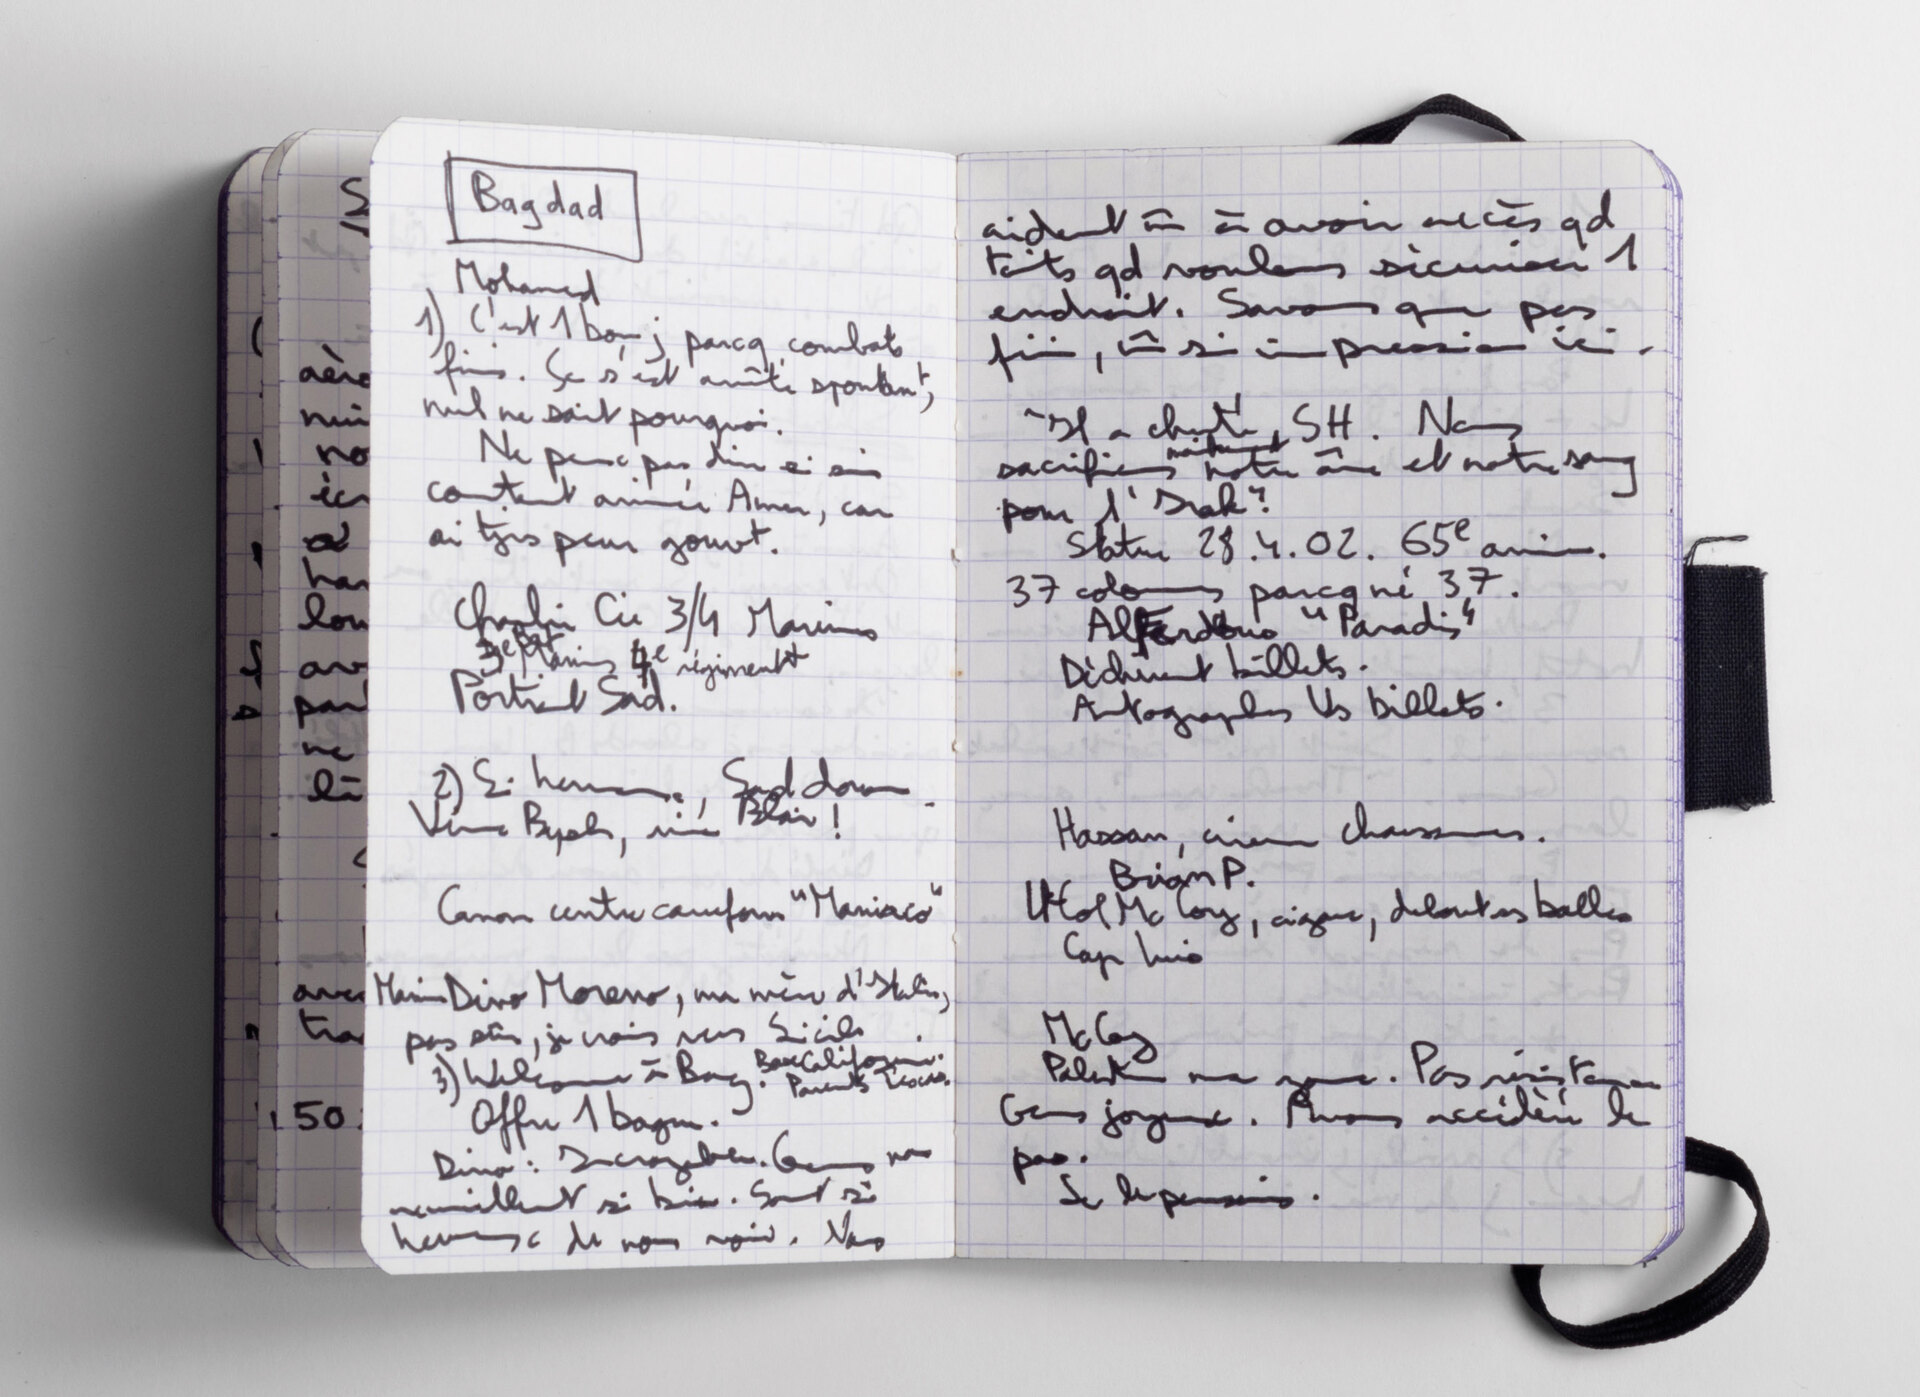 Bagdad
Mohamed
1) C'est 1 bon j parcq combats
finis. Se s'est arrêté spontan^t,
nul ne sait pourquoi.
Ne peux pas dire si suis
content arrivée Amer, car
ai tjrs peur gouvt.
Charlie Cie 3/4 Marines
3e Bat Marines 4e régiment
Portrait Sad.
2) Si heureuse, Sad down.
Vive Bush, vive Blair!
Canon centre carrefour "Maniaco"
Marine Dino Moreno, ma mère d'Italie,
pas sûr, je crois vers Sicile.
3) Welcome à Bag. BaseCalifornie.
Parents
Offre 1 bague.
Dino: Incroyable. Gens nous
accueillent si bien. Sont si
heureux de nous voir. Nous
aident m̂ à avoir accès qd
toits qd voulons sécuriser 1
endroit. Savons que pas
fini, m̂ si impression ici.
"Il a chuté, SH. Nous
sacrifions maintenant notre âme et notre sang
pour l'Irak"
Statue 28.4.02. 65e anniv.
37 colonnes parcq né 37.
AlFerdous "Paradis"
Déchirent billets.
Autographes US billets.
Hassan, cireur chaussures.
Brian P.
Lt Col McCoy, cigare, debout balles
Cap
McCoy
Palestine. Pas résistance
Gens joyeux. Avons accéléré le
pas.
Se le pensais.
aéro
no
han
par
ne
là
avec
50